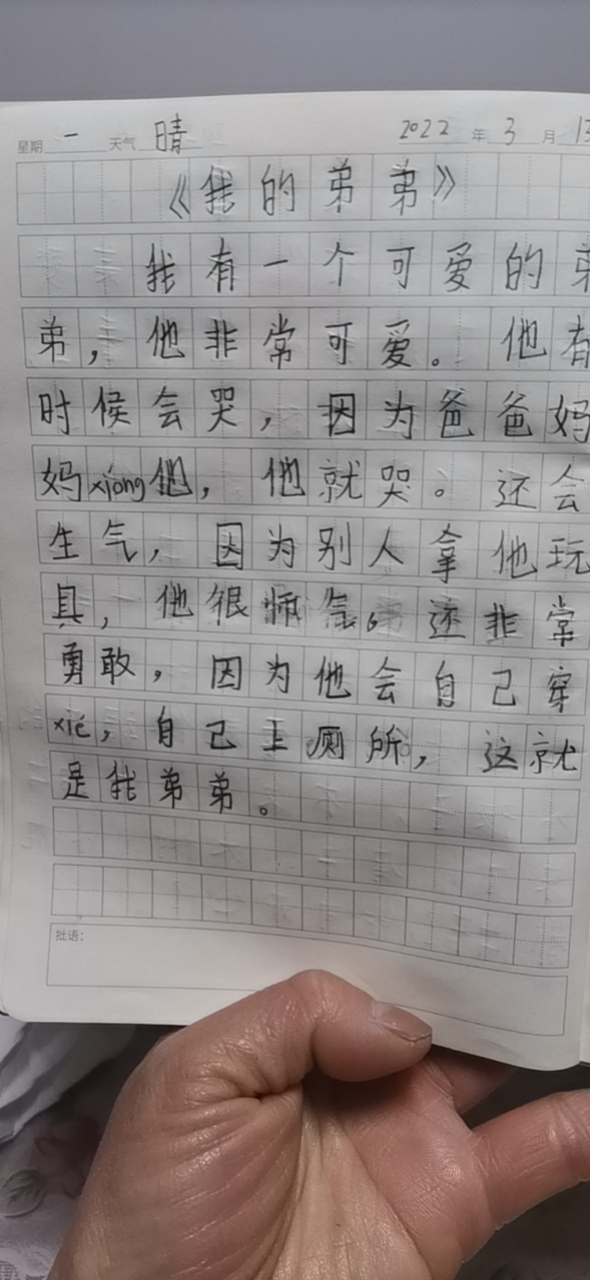 星期 一 天气 晴 2022 年 3 月 13
《我的弟弟》
我有一个可爱的弟
弟，他非常可爱。他有
时候会哭，因为爸爸妈
妈xiōng他，他就哭。还会
生气，因为别人拿他玩
具，他很帅气。还非常
勇敢，因为他会自己穿
xié，自己上厕所，这就
是我弟弟。
批语：